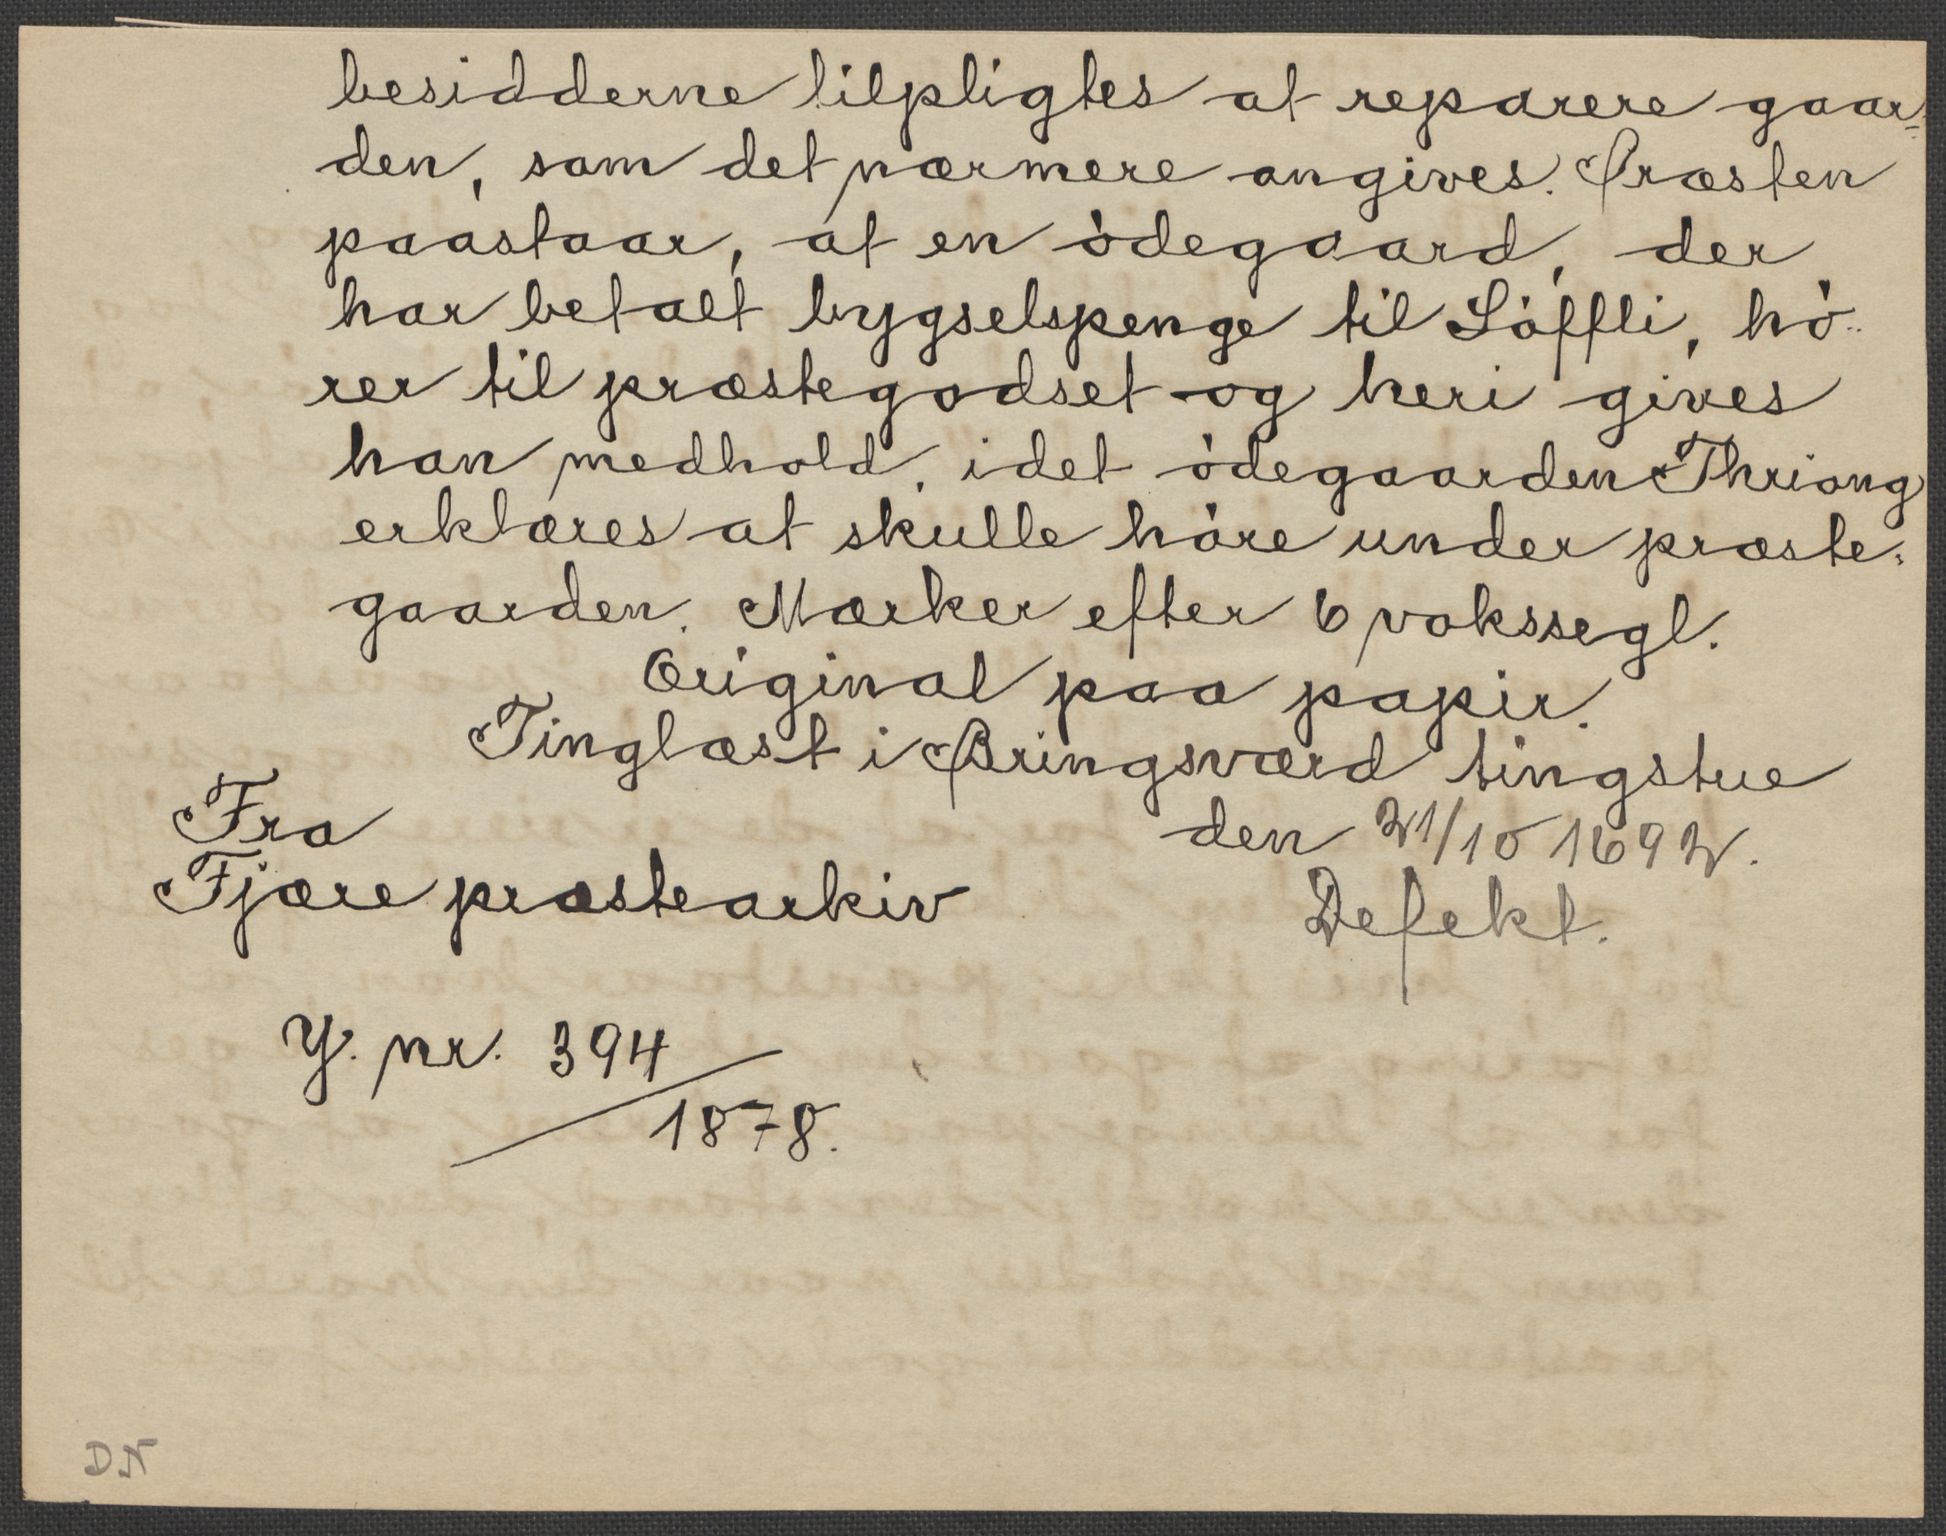 besidderne tilpligtes at reparere gaar=
den, som det nærmere angives. Præsten
paastaar, at en ødegaard, der
har betalt bygselspenge til Löffli, hö-
rer til præstegodset og heri gives
han medhold, idet ødegaarden Thriong
erklæres at skulle høre under præste-
gaarden. Mærker efter 6 vokssegl.
Original paa papir.
Tinglæst i Bringsværd tingstue
den 21/10 1692.
Defekt.
Fra
Fjære præstearkiv
Y. nr. 394
1878.
DN